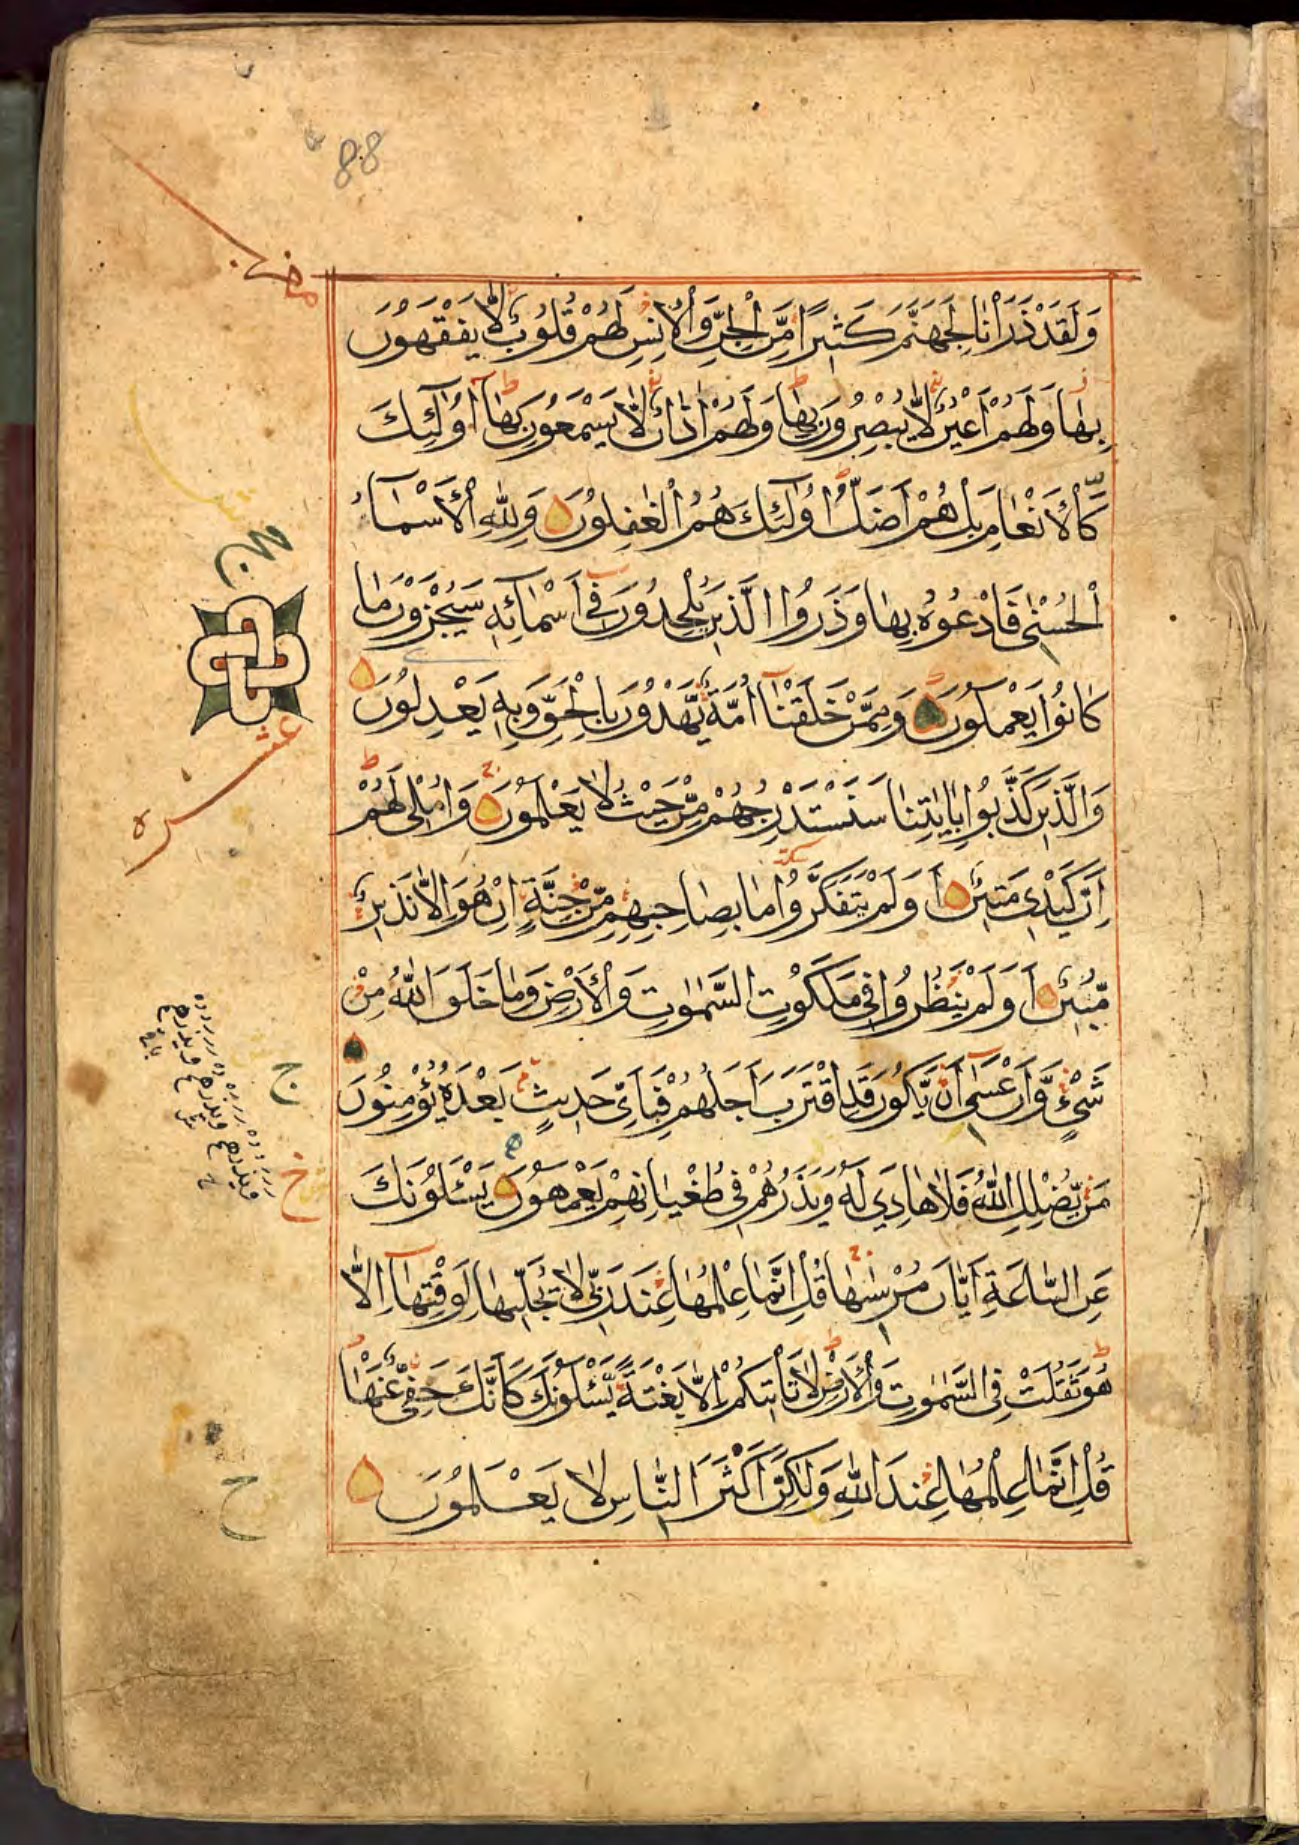 88
وَلَقَدْ ذَرَاْنَا لِجَهَنَّمَ كَثِيرًا مِّنَ الْجِنِّ وَالْاِنْسِ لَهُمْ قُلُوبٌ لَّا يَفْقَهُونَ
بِهَا وَلَهُمْ اَعْيُنٌ لَّا يُبْصِرُونَ بِهَا وَلَهُمْ اٰذَانٌ لَّا يَسْمَعُونَ بِهَا اُولٰٓئِكَ
كَالْاَنْعَامِ بَلْ هُمْ اَضَلُّ اُولٰٓئِكَ هُمُ الْغٰفِلُونَ وَلِلّٰهِ الْاَسْمَآءُ
الْحُسْنٰى فَادْعُوهُ بِهَا وَذَرُوا الَّذِينَ يُلْحِدُونَ فِىٓ اَسْمَآئِهٖ سَيُجْزَوْنَ مَا
كَانُوا يَعْمَلُونَ وَمِمَّنْ خَلَقْنَآ اُمَّةٌ يَّهْدُونَ بِالْحَقِّ وَبِهٖ يَعْدِلُونَ
وَالَّذِينَ كَذَّبُوا بِاٰيٰتِنَا سَنَسْتَدْرِجُهُمْ مِّنْ حَيْثُ لَا يَعْلَمُونَ وَاُمْلِى لَهُمْ
اِنَّ كَيْدِى مَتِينٌ اَوَلَمْ يَتَفَكَّرُوا مَا بِصَاحِبِهِمْ مِّنْ جِنَّةٍ اِنْ هُوَ اِلَّا نَذِيرٌ
مُّبِينٌ اَوَلَمْ يَنْظُرُوا فِى مَلَكُوتِ السَّمٰوٰتِ وَالْاَرْضِ وَمَا خَلَقَ اللّٰهُ مِنْ
شَىْءٍ وَّاَنْ عَسٰٓى اَنْ يَّكُونَ قَدِ اقْتَرَبَ اَجَلُهُمْ فَبِاَىِّ حَدِيثٍ بَعْدَهُ يُؤْمِنُونَ
مَنْ يُّضْلِلِ اللّٰهُ فَلَا هَادِيَ لَهُ وَيَذَرُهُمْ فِى طُغْيَانِهِمْ يَعْمَهُونَ يَسْـَٔلُونَكَ
عَنِ السَّاعَةِ اَيَّانَ مُرْسٰىهَا قُلْ اِنَّمَا عِلْمُهَا عِنْدَ رَبِّى لَا يُجَلِّيهَا لِوَقْتِهَآ اِلَّا
هُوَ ثَقُلَتْ فِى السَّمٰوٰتِ وَالْاَرْضِ لَا تَاْتِيكُمْ اِلَّا بَغْتَةً يَّسْـَٔلُونَكَ كَاَنَّكَ حَفِىٌّ عَنْهَا
قُلْ اِنَّمَا عِلْمُهَا عِنْدَ اللّٰهِ وَلٰكِنَّ اَكْثَرَ النَّاسِ لَا يَعْلَمُونَ
عشره
ج
خ
ح